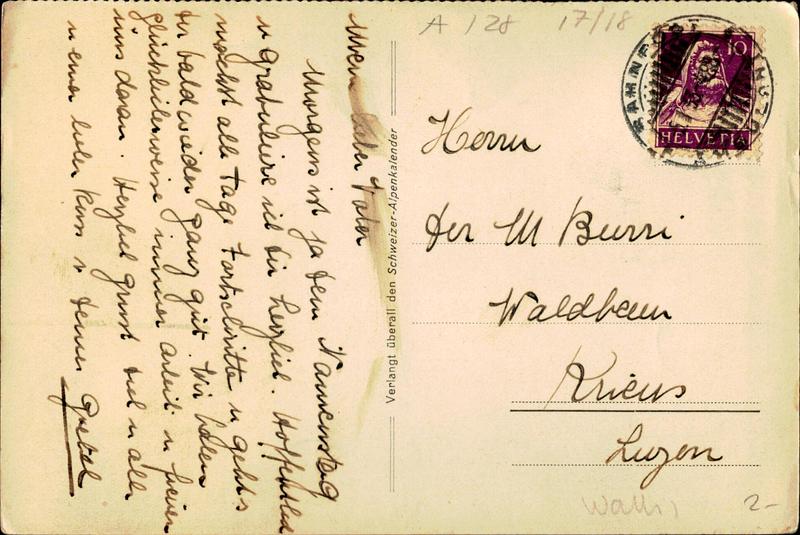 Mein lieber Vater
Morgens ist ja dein Namenstag
u gratuliere ich dir herzlich. Hoffentlich
machst alle Tage Fortschritte u geht's
dir bald wieder ganz gut. Wir haben
glücklicherweise immer Arbeit u freuen
uns daran. Herzlich grüsst euch alle
u einen lieben Kuss v deiner Gretel
Verlangt überall den Schweizer-Alpenkalender
A 128 17/18
10
HELVETIA
Herrn
Burri
Kriens
Luzern
Wallis
2.-